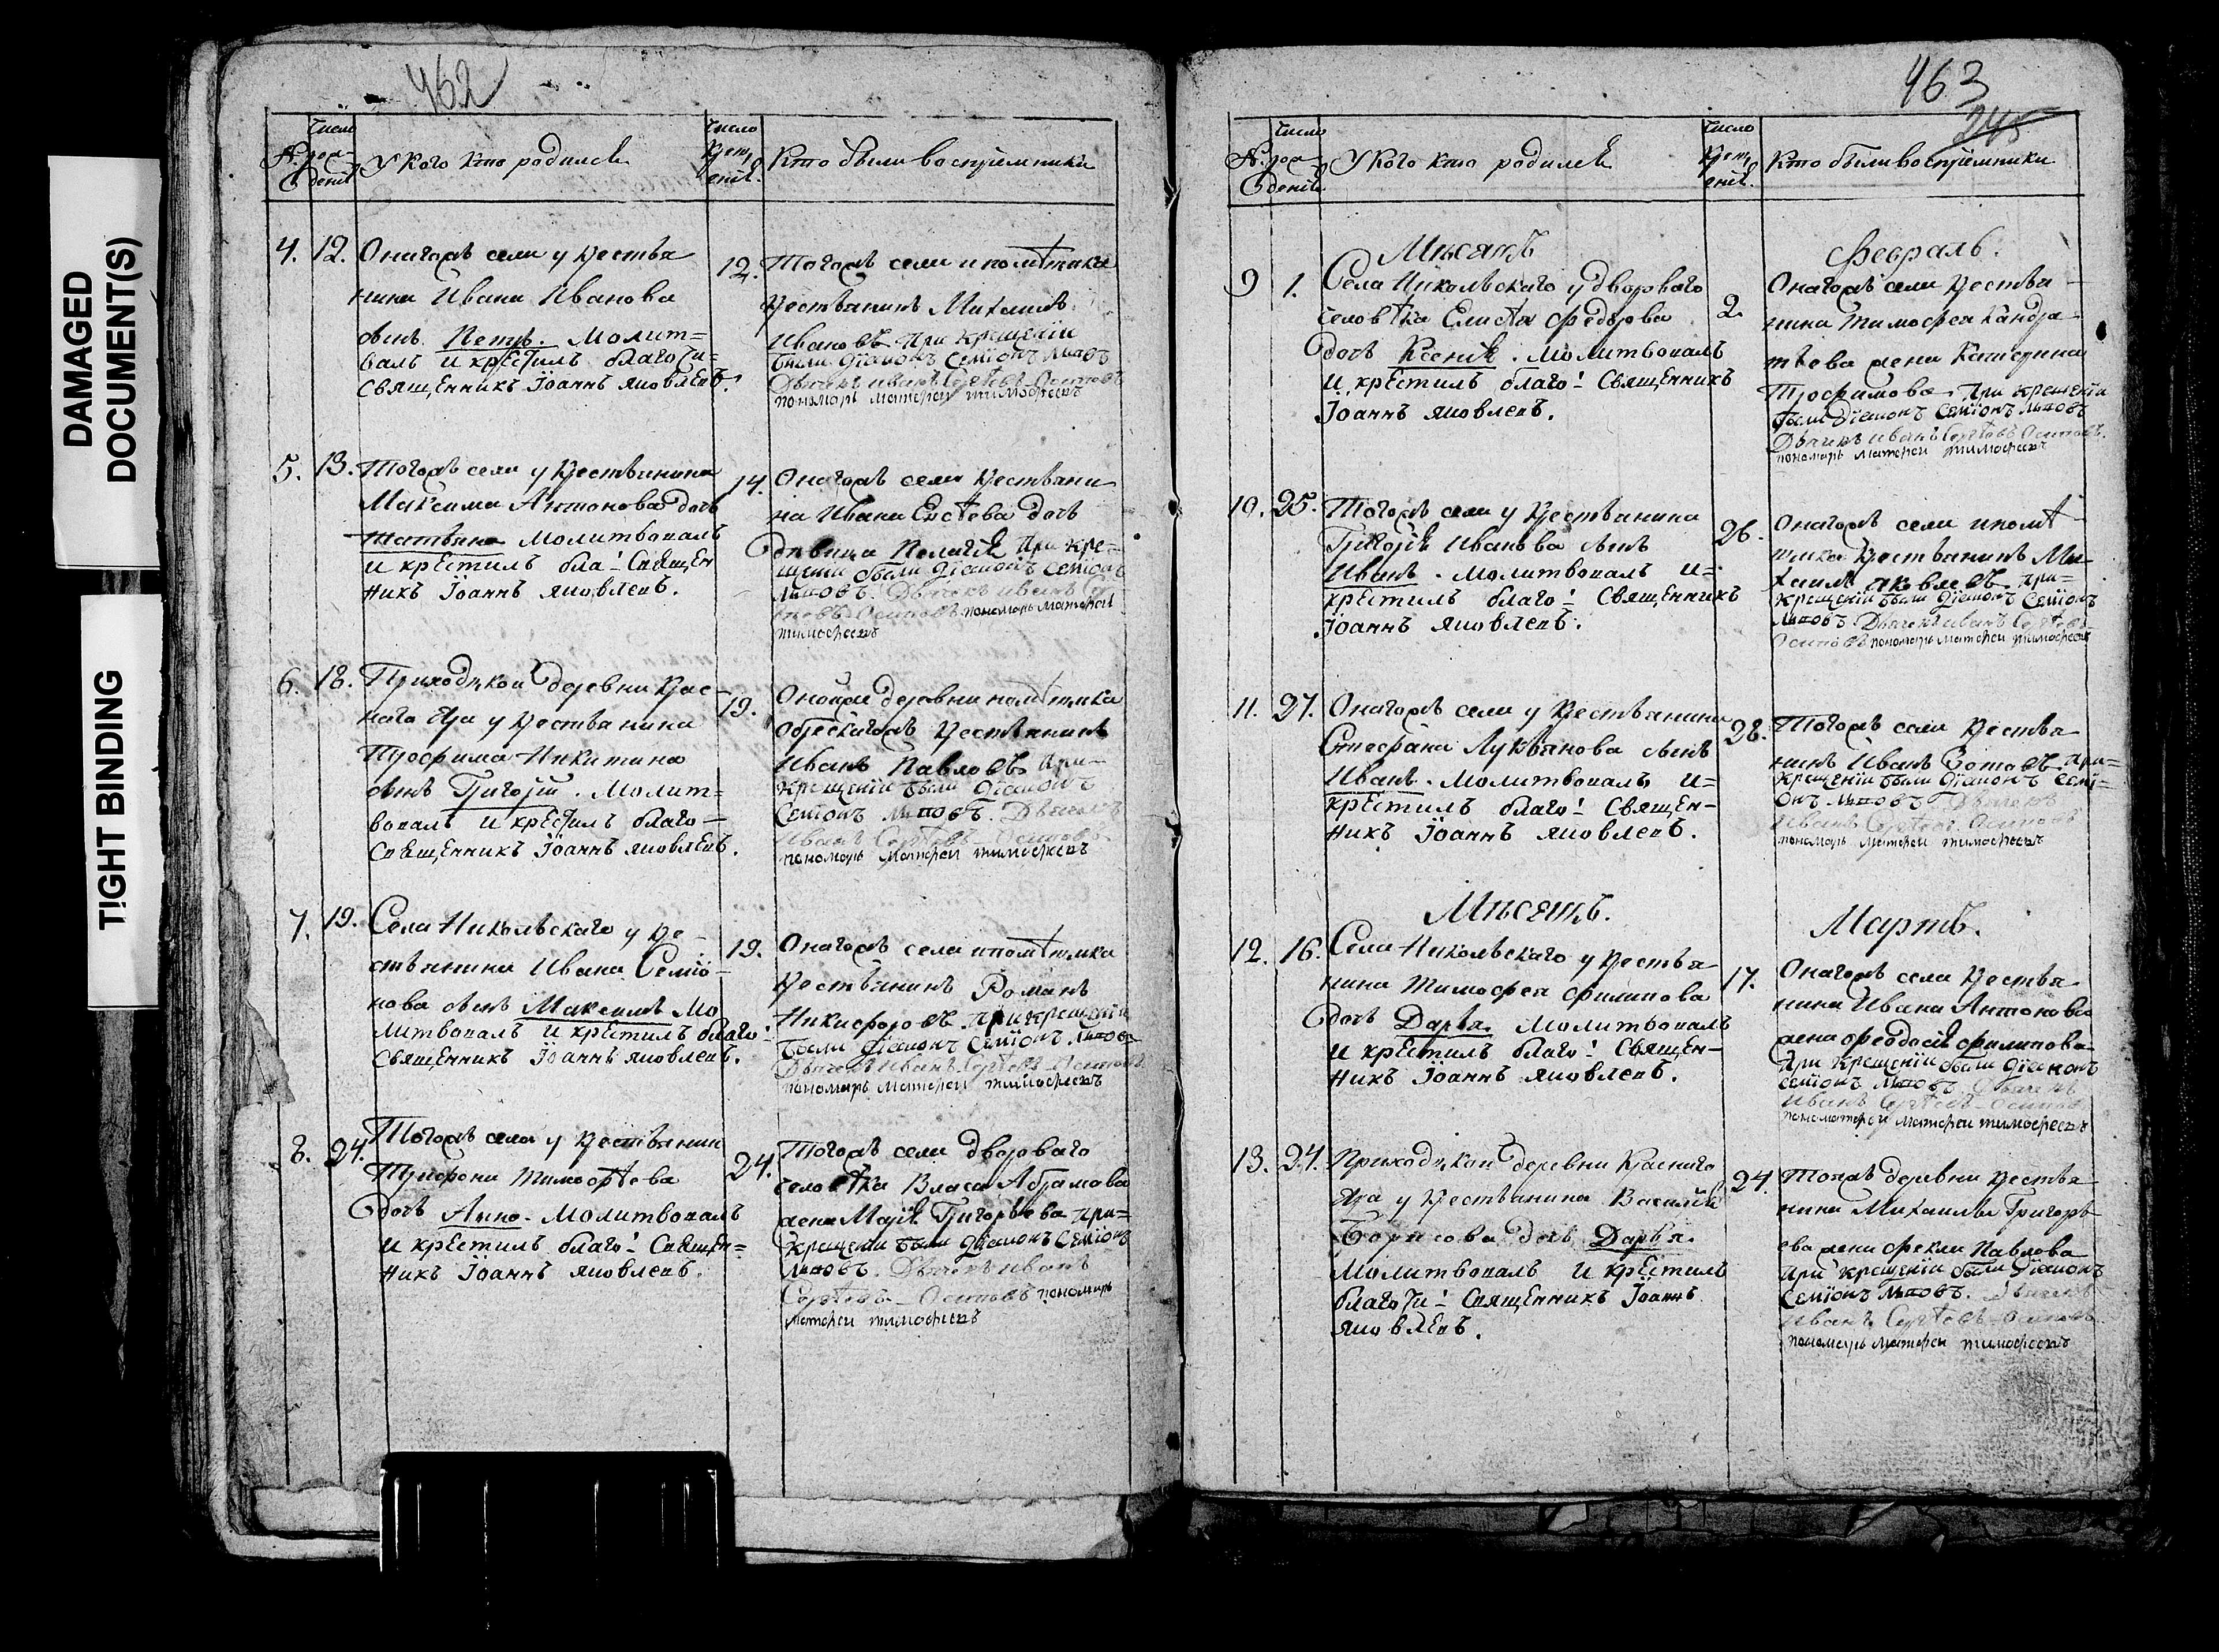 DAMAGED
DOCUMENT(S)
TIGHT BINDING
462
Число
№ рож-
денiя
У кого кто родился
Число
крещ,
енiя.
Кто были воспрiемники
4. 12. Онагожъ села у крестья
нина Ивана Иванова
сынъ Петръ. Молит=
валъ и крестилъ благочи-
священникъ Iоаннъ яковлевъ.
12. Тогожъ села и помѣщика
крестьянинъ Михаилъ
Ивановъ при крещенiи
были дiаконъ Семiонъ
Дьячекъ иванъ Сергѣевъ Осиповъ
пономарь матфеи тимофеевъ
5. 13. Тогожъ села у крестьянина
Максима Антонова дочь
Татьяна молитвовалъ
и крестилъ бла: Священ
никъ Iоаннъ яковлевъ.
14. Онагожъ села крестьяни
на Ивана Евсѣева дочь
дѣвица Пелагiя при кре=
щенiи были дiаконъ Семiонъ
Дьячекъ иванъ Сер
гѣевъ Осиповъ пономарь матфеи
тимофеевъ
6. 18. Приходской деревни Крас
наго Яра у крестьянина
Трофима Никитина
сынъ Григорiй. Молит=
вовалъ и крестилъ благо-
священникъ Iоаннъ яковлевъ.
19. Оной же деревни помѣщика
крестьянинъ
Иванъ Павловъ при-
крещенiи были дiаконъ
Семiонъ Дьячекъ
Иванъ Сергѣевъ Осиповъ
пономарь матфеи тимофеевъ
7. 19. Села Никольскаго у кре-
стьянина Ивана Семiо-
нова сынъ Максимъ Мо
литвовалъ и крестилъ благо:
священникъ Iоаннъ яковлевъ.
19. Онагожъ села и помѣщика
крестьянинъ Романъ
Никифоровъ при крещенiи
были дiаконъ Семiонъ
Дьячекъ Иванъ Сергѣевъ Осиповъ
пономарь матфеи тимофеевъ
8. 24. Тогожъ села у крестьянин
Трифона Тимофѣева
дочь Анна. Молитвовалъ
и крестилъ благо: Священ=
никъ Iоаннъ яковлевъ.
24. Тогожъ села двороваго
человѣка Власа Абрамова
жена Марiя Григорьева при=
крещенiи были дiаконъ Семiонъ
Дьячекъ иванъ
Сергѣевъ Осиповъ пономарь
матфеи тимофеевъ
463
245
Число
№ рож-
денiя
У кого кто родился
Число
крещ,
енiя.
Кто были воспрiемники
Мѣсяцъ
Февраль.
9 1. Села Никольскаго у двороваго
человѣка Елисѣя Федорова
дочь Ксенiя. молитвовалъ
и крестилъ благо: Священникъ
Iоаннъ яковлевъ.
2. Онагожъ села крестья-
нина Тимофея Кандра-
тьева жена Катерина
Трофимова при крещенiи
были дiаконъ Семiонъ
Дьячекъ иванъ Сергѣевъ Осиповъ
пономарь матфеи тимофеевъ
10. 25. Тогожъ села у крестьянина
Григорiя Иванова сынъ
Иванъ. молитвовалъ и=
крестилъ благо: Священникъ
Iоаннъ яковлевъ.
26. Онагожъ села и помѣ-
щика крестьянинъ Ми-
хаилъ яковлевъ при-
крещенiи были дiаконъ Семiонъ
Дьячекъ иванъ Сергѣевъ
Осиповъ пономарь матфеи тимофеевъ
11. 27. Онагожъ села у крестьянина
Стефана Лукьянова сынъ
Иванъ. молитвовалъ и=
крестилъ благо: Священ-
никъ Iоаннъ яковлевъ.
28. Тогожъ села крестья
нинъ Иванъ Зотовъ при-
крещенiи были дiаконъ Семi-
онъ Дьячекъ
Иванъ Сергѣевъ Осиповъ
пономарь матфеи тимофеевъ
Мѣсяцъ.
Мартъ.
12. 16. Села Никольскаго у крестья
нина Тимофея Филипова
дочь Дарья. Молитвовалъ
и крестилъ благо: Священ-
никъ Iоаннъ яковлевъ.
17. Онагожъ села крестья
нина Ивана Антонова
жена Феодосiя Филипова
при крещенiи были дiаконъ
Семiонъ Дьячекъ
Иванъ Сергѣевъ Осиповъ
матфеи тимофеевъ
13. 24. Приходской деревни Краснаго
Яра у крестьянина Василiя
Борисова дочь Дарья.
молитвовалъ и крестилъ
благочи: Священникъ Iоаннъ
яковлевъ.
24. Тояжъ деревни крестья
нина Михаилы Григорь
ева жена Фекла Павлова
при крещенiи были дiаконъ
Семiонъ Дьячекъ
Иванъ Сергѣевъ Осиповъ
пономарь матфеи тимофеевъ